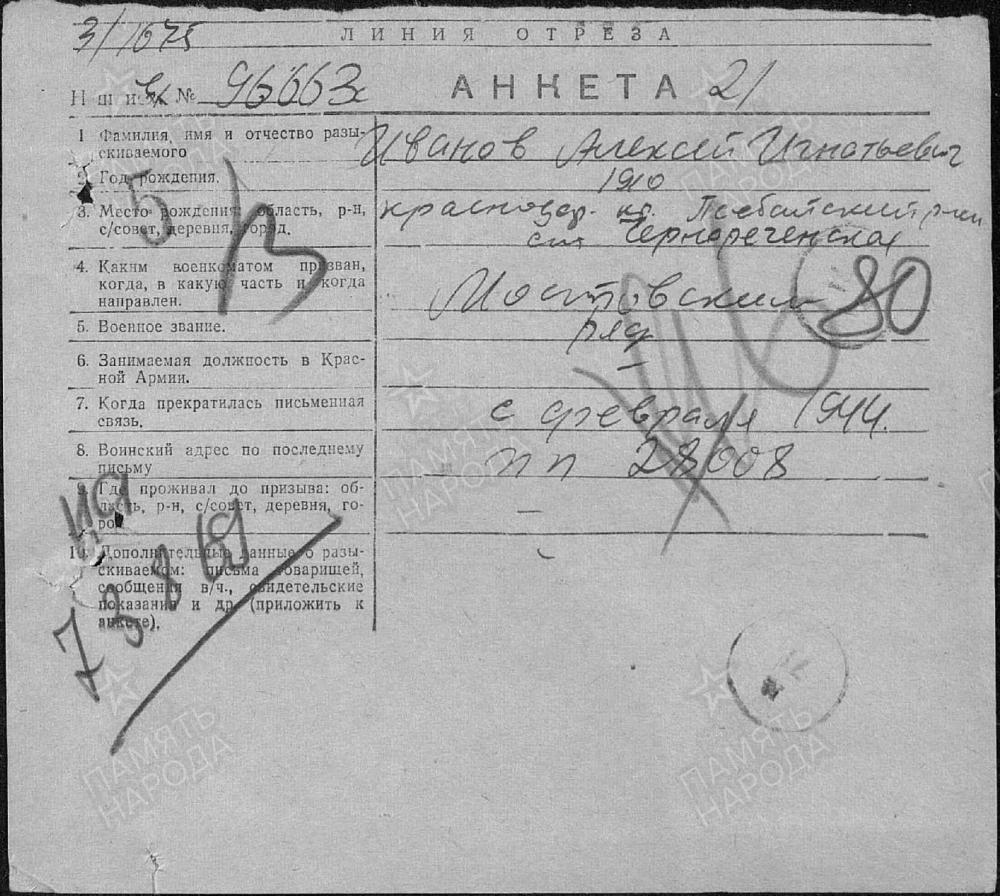 3/1675
ЛИНИЯ ОТРЕЗА
Н ш и № 96663с АНКЕТА 21
1 Фамилия, имя и отчество разы-
скиваемого
Иванов Алексей Игнатьевич
2. Год рождения.
1910
3. Место рождения, область, р-н,
с/совет, деревня, город.
Краснодар. кр. Псебайский р-н
ст. Чернореченская
4. Каким военкоматом призван,
когда, в какую часть и когда
направлен.
Мостовским
5. Военное звание.
ряд
6. Занимаемая должность в Крас-
ной Армии.
—
7. Когда прекратилась письменная
связь.
с февраля 1944.
8. Воинский адрес по последнему
письму
пп 28008
9. Где проживал до призыва: об-
ласть, р-н, с/совет, деревня, го-
род
—
10. Дополнительные данные о разы-
скиваемом: письма товарищей,
сообщения в/ч., свидетельские
показания и др. (приложить к
анкете).
80
5
ПАМЯТЬ
НАРОДА
ПАМЯТЬ
НАРОДА
ПАМЯТЬ
НАРОДА
ПАМЯТЬ
НАРОДА
ПАМЯТЬ
НАРОДА